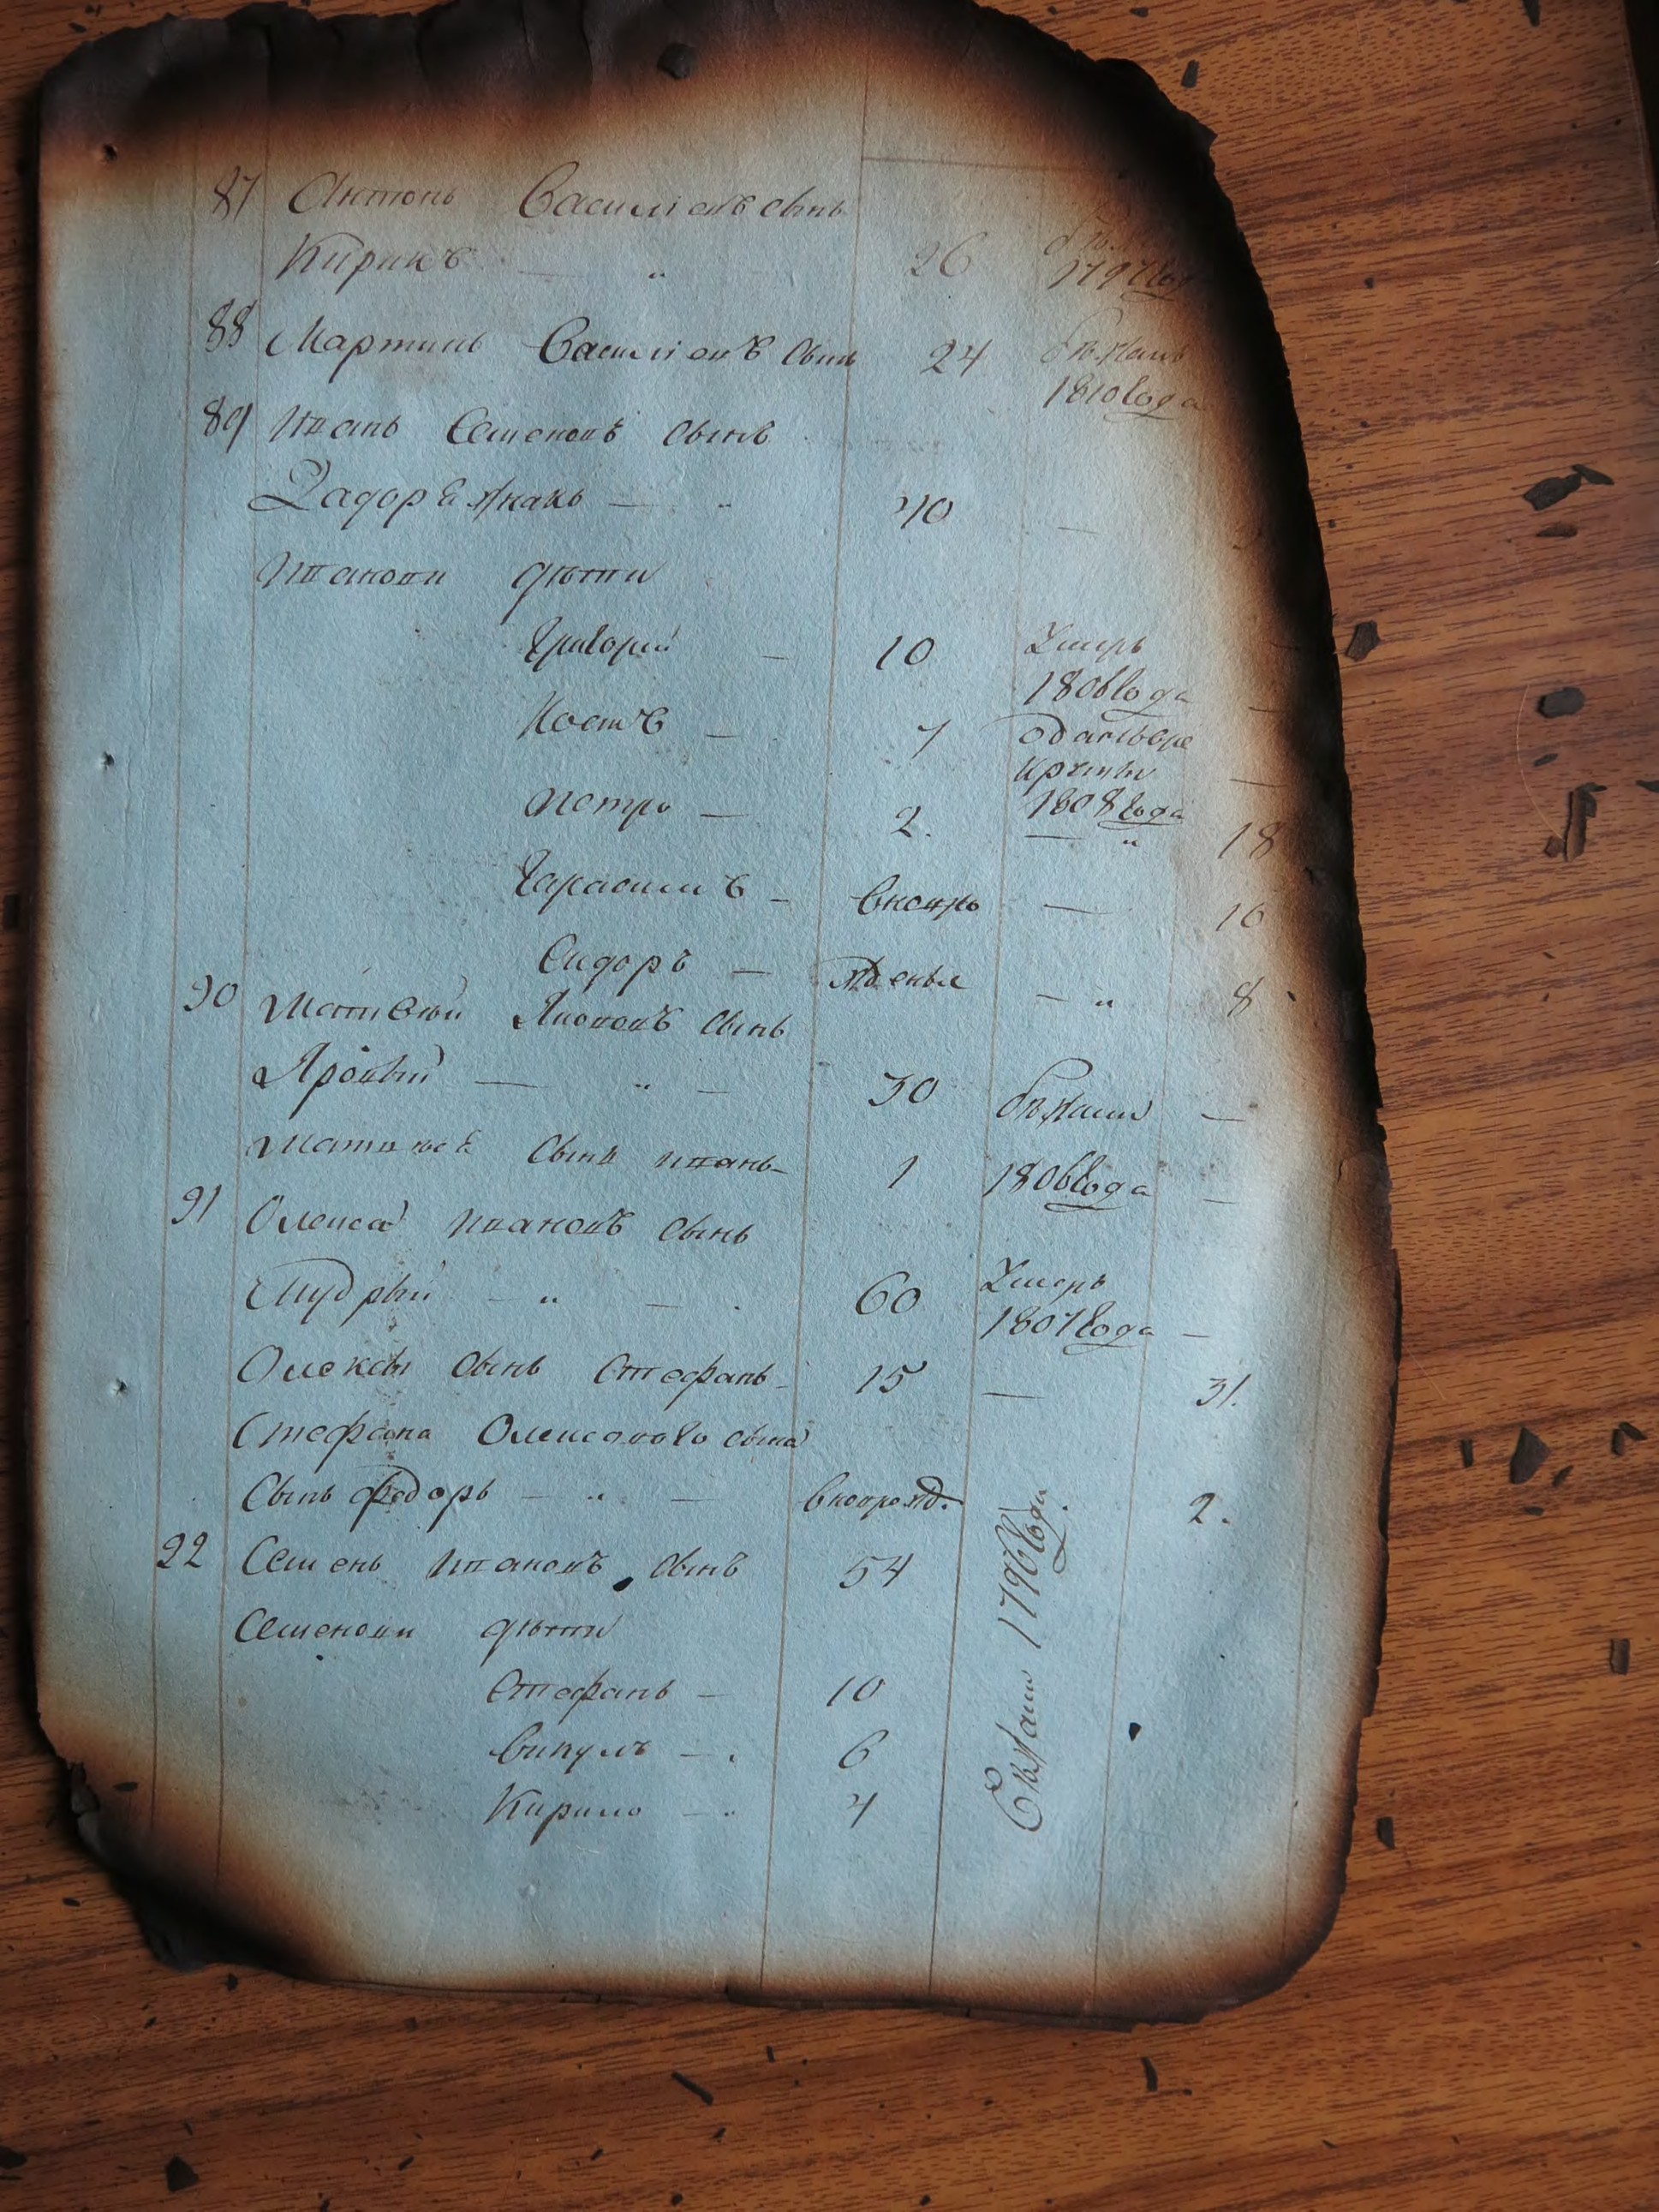 87 Антонъ Василіевъ сынъ
Кирикъ — „ 26
1797 год
88 Мартинъ Василіевъ сынъ 24 бѣжалъ
1810 года
89 Иванъ Семеновъ сынъ
Задорожнакъ — „ 40 —
Ивановы дѣти
Григорий — 10 Умеръ
1806 года —
Костъ — 7 Отданъ въ ре
круты —
1808 года
Петро — 2. — „ 18
Гарасимъ — вновь — 10
Сидоръ — рожденые — „ 8
90 Матвей Якововъ сынъ
Яровый — „ — 30 бѣжали —
Матвѣя сынъ Иванъ 1 1806 года —
91 Олекса Ивановъ сынъ
Мудрый — „ — 60 Умеръ
1807 года —
Олексы сынъ Стефанъ 15 — 31.
Стефана Олексового сына
Сынъ Федоръ — „ — вновь рожд. 2.
92 Семенъ Ивановъ сынъ 54
Семеновы дѣти
Стефанъ — 10
Викулъ — 6
Кирило — „ 4
Бѣжали 1796 года.